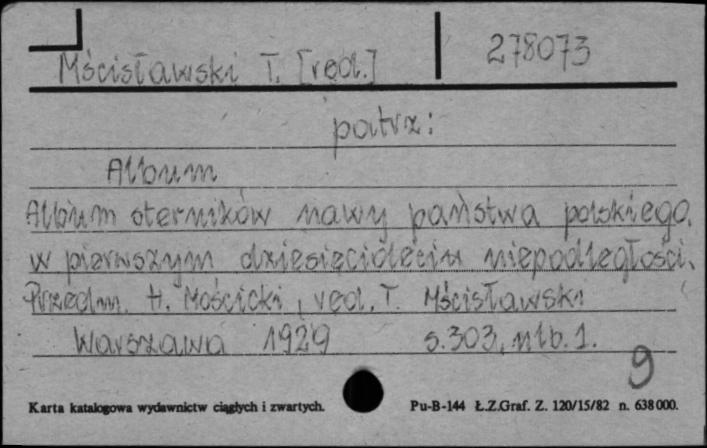 Mścisławski T. [red.] 278073
patrz:
Album
Album sterników nawy państwa polskiego
w pierwszym dziesięcioleciu niepodległości.
Przedm. H. Mościcki, red. T. Mścisławski
Warszawa 1929 s. 303, nlb. 1.
9
Karta katalogowa wydawnictw ciągłych i zwartych. Pu-B-144 Ł.Z.Graf. Z. 120/15/82 n. 638 000.